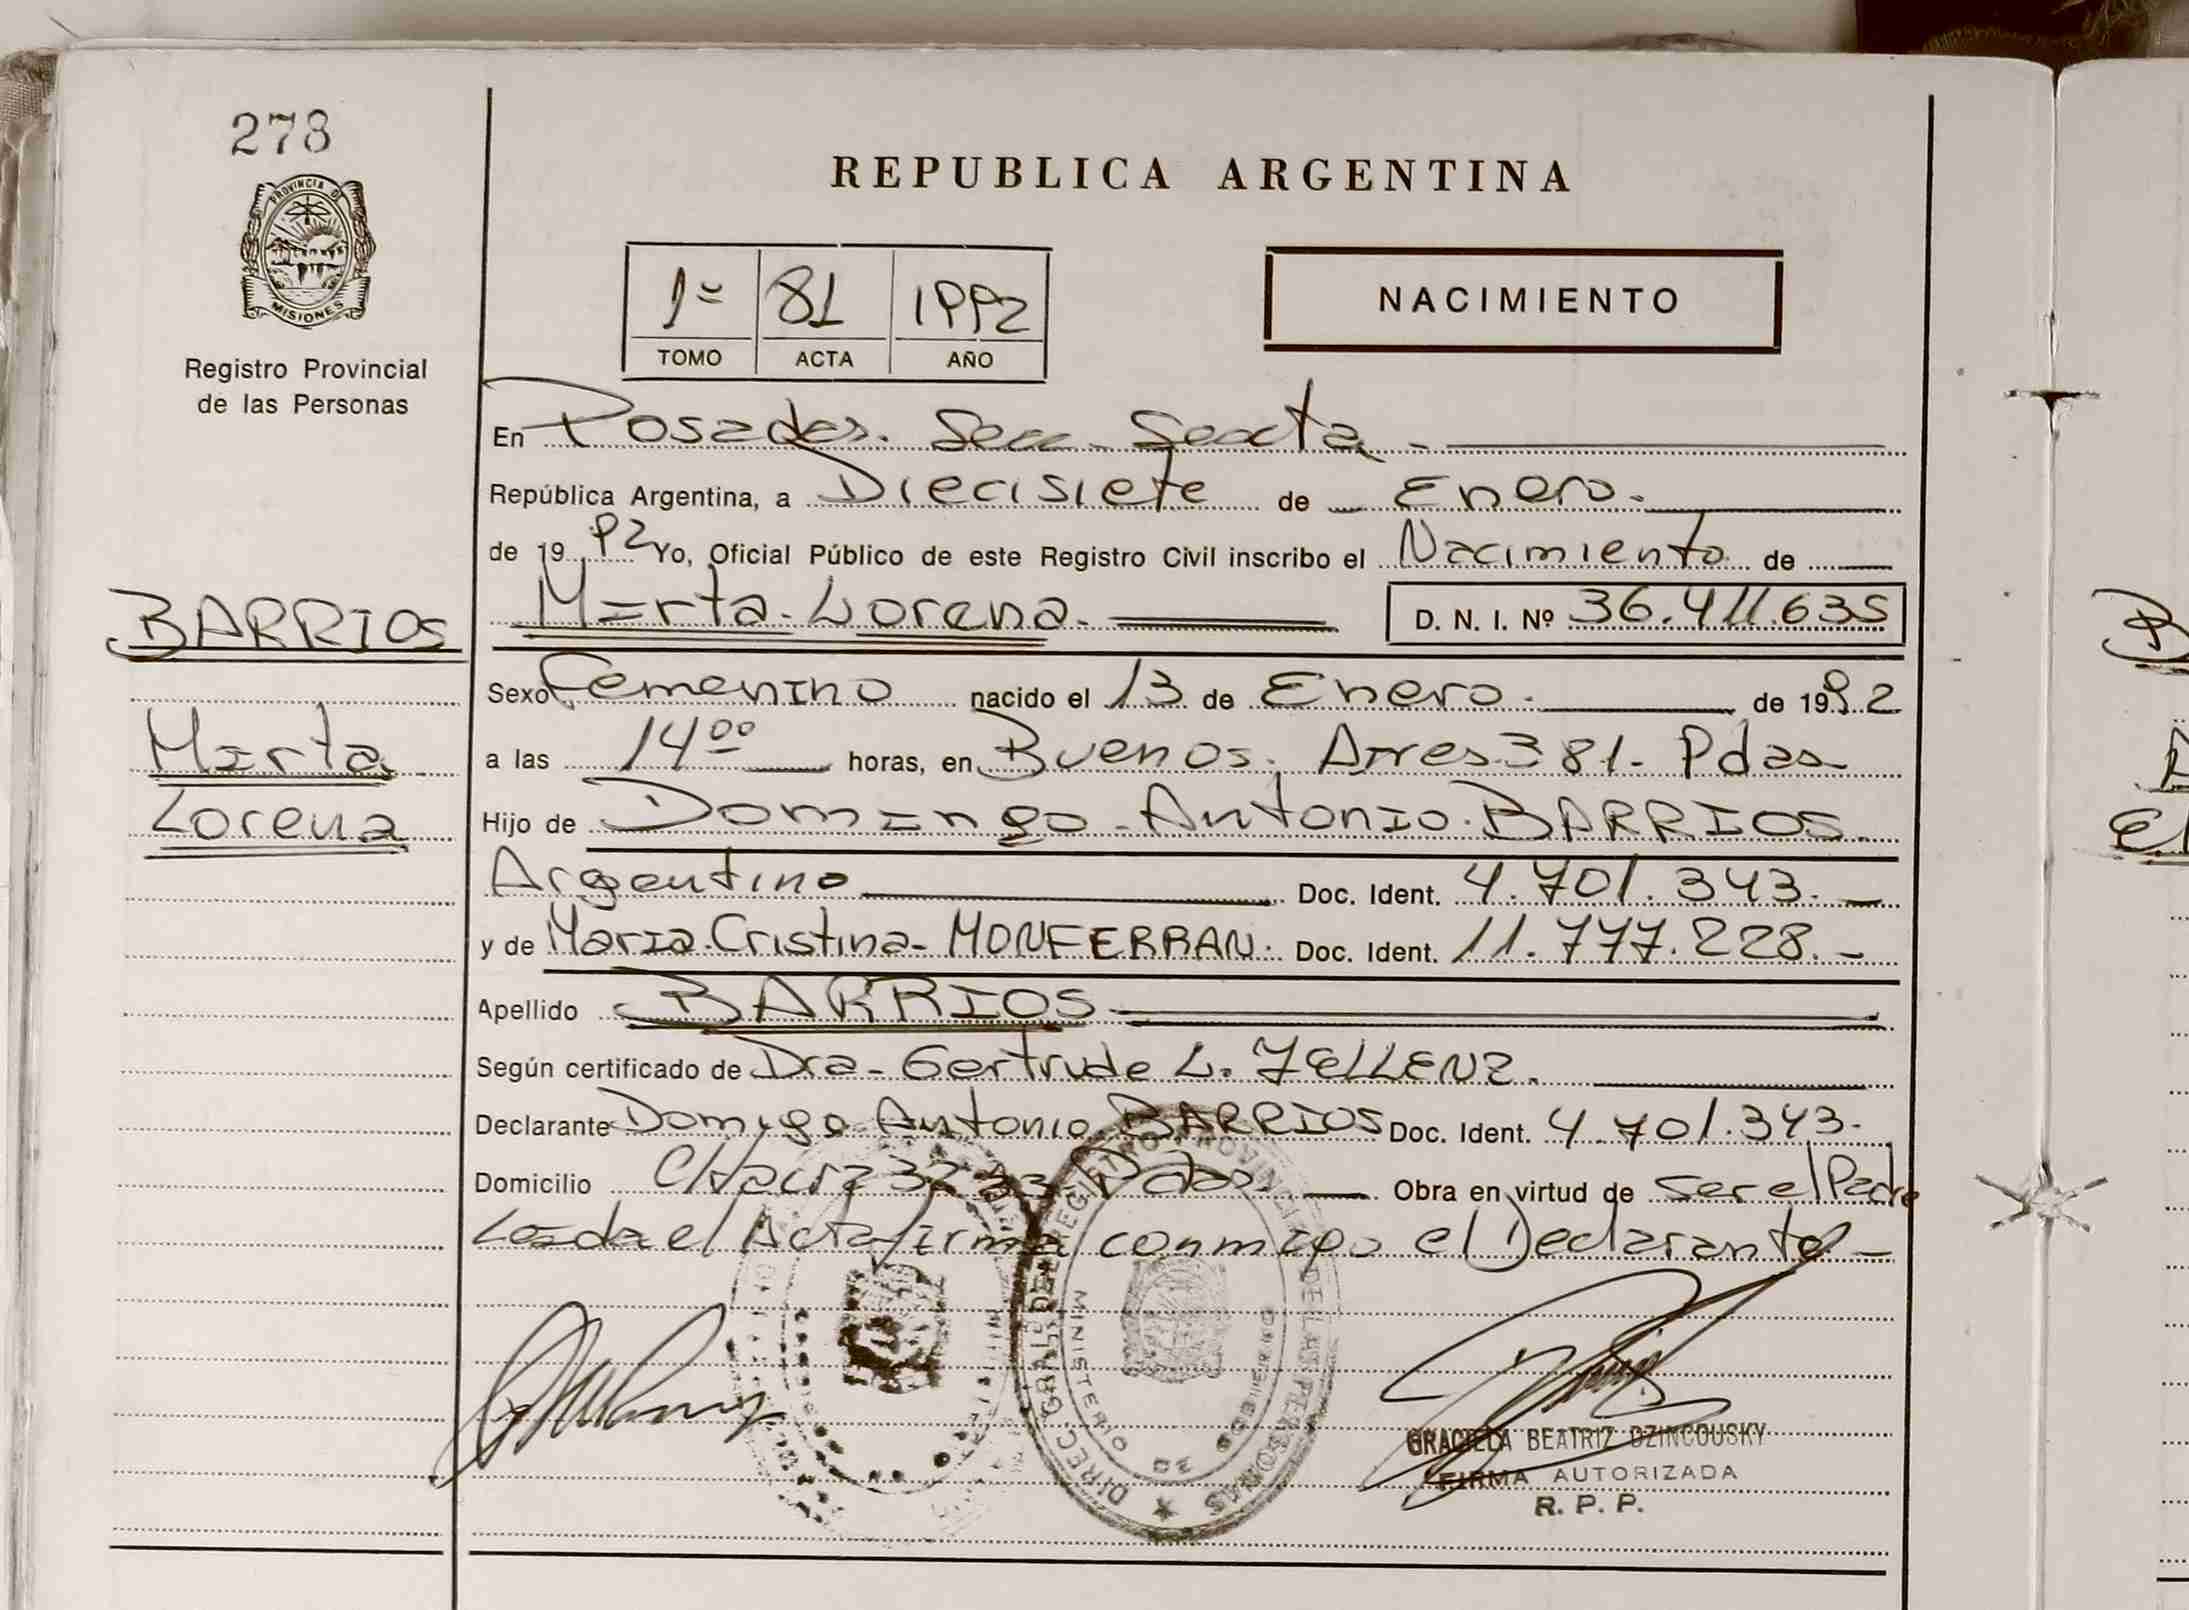 278
PROVINCIA DE
MISIONES
Registro Provincial
de las Personas
BARRIOS
Mirta
Lorena
REPUBLICA ARGENTINA
1º 81 1992
TOMO ACTA AÑO
NACIMIENTO
En Posadas. Secc. Sexta
República Argentina, a Diecisiete de Enero.
de 1992 Yo, Oficial Público de este Registro Civil inscribo el Nacimiento de
Mirta Lorena D. N. I. Nº 36.411.635
Sexo Femenino nacido el 13 de Enero de 1992
a las 14⁰⁰ horas, en Buenos Aires 381. Pdas
Hijo de Domingo Antonio BARRIOS
Argentino Doc. Ident. 4.701.343.
y de Maria Cristina MONFERRAN. Doc. Ident. 11.777.228.
Apellido BARRIOS
Según certificado de Dra. Gertrude L.
Declarante Domigo Antonio BARRIOS Doc. Ident. 4.701.343.
Domicilio Pdas. Obra en virtud de ser el Padre
Leida el Acta firma conmigo el Declarante
DIREC. GRAL. DEL REGISTRO PROVINCIAL DE LAS PERSONAS
MINISTERIO DE GOBIERNO
GRACIELA BEATRIZ DZINCOUSKY
FIRMA AUTORIZADA
R. P. P.